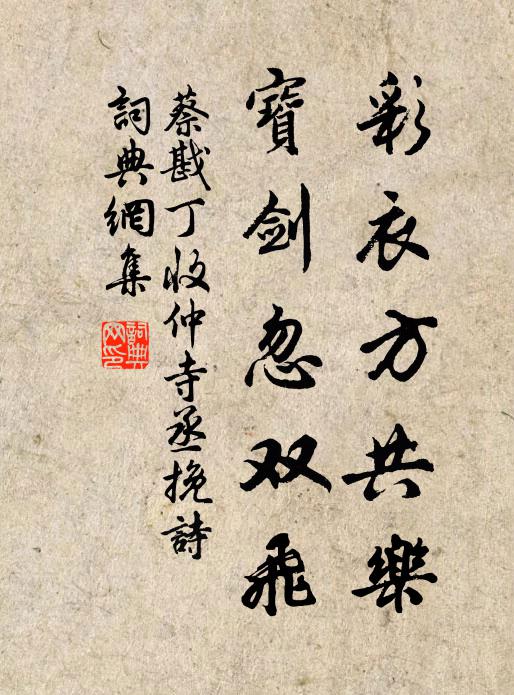 彩衣方共樂
寶劍忽双飛
蔡戡丁收仲寺丞挽詩
詞典網集
詞典网印